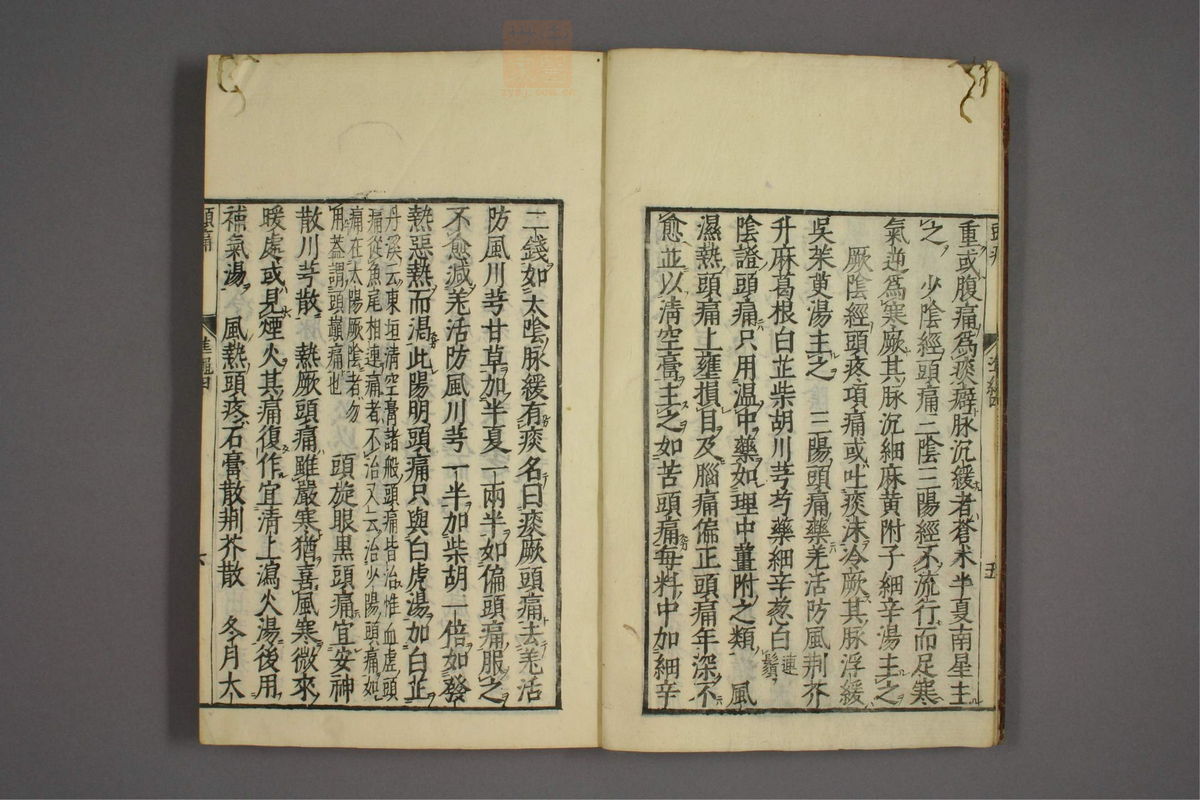 重或腹痛爲痰癖脉沉緩者蒼朮半夏南星主
之　少陰經頭痛二陰三陽經不流行而足寒
氣逆爲寒厥其脉沉細麻黄附子細辛湯主之
厥陰經頭疼項痛或吐痰沫冷厥其脉浮緩
吳茱萸湯主之　三陽頭痛藥羌活防風荆芥
升麻葛根白芷柴胡川芎芍藥細辛葱白連鬚
陰證頭痛只用温中藥如理中薑附之類　風
濕熱頭痛上壅損目及腦痛偏正頭痛年深不
愈並以清空膏主之如苦頭痛每料中加細辛
五
二錢如太陰脉緩有痰名曰痰厥頭痛去羌活
防風川芎甘草加半夏一兩半如偏頭痛服之
不愈減羌活防風川芎一半加柴胡一倍如發
熱惡熱而渴此陽明頭痛只與白虎湯加白芷
丹溪云東垣清空膏諸般頭痛皆治惟血虚頭
痛從魚尾相連痛者不治又云治少陽頭痛如
痛在太陽厥陰者勿
用蓋謂頭巔痛也
頭旋眼黒頭痛宜安神
散川芎散　熱厥頭痛雖嚴寒猶喜風寒微來
暖處或見煙火其痛復作宜清上瀉火湯後用
補氣湯　風熱頭疼石膏散荆芥散　冬月大
頭痛
六